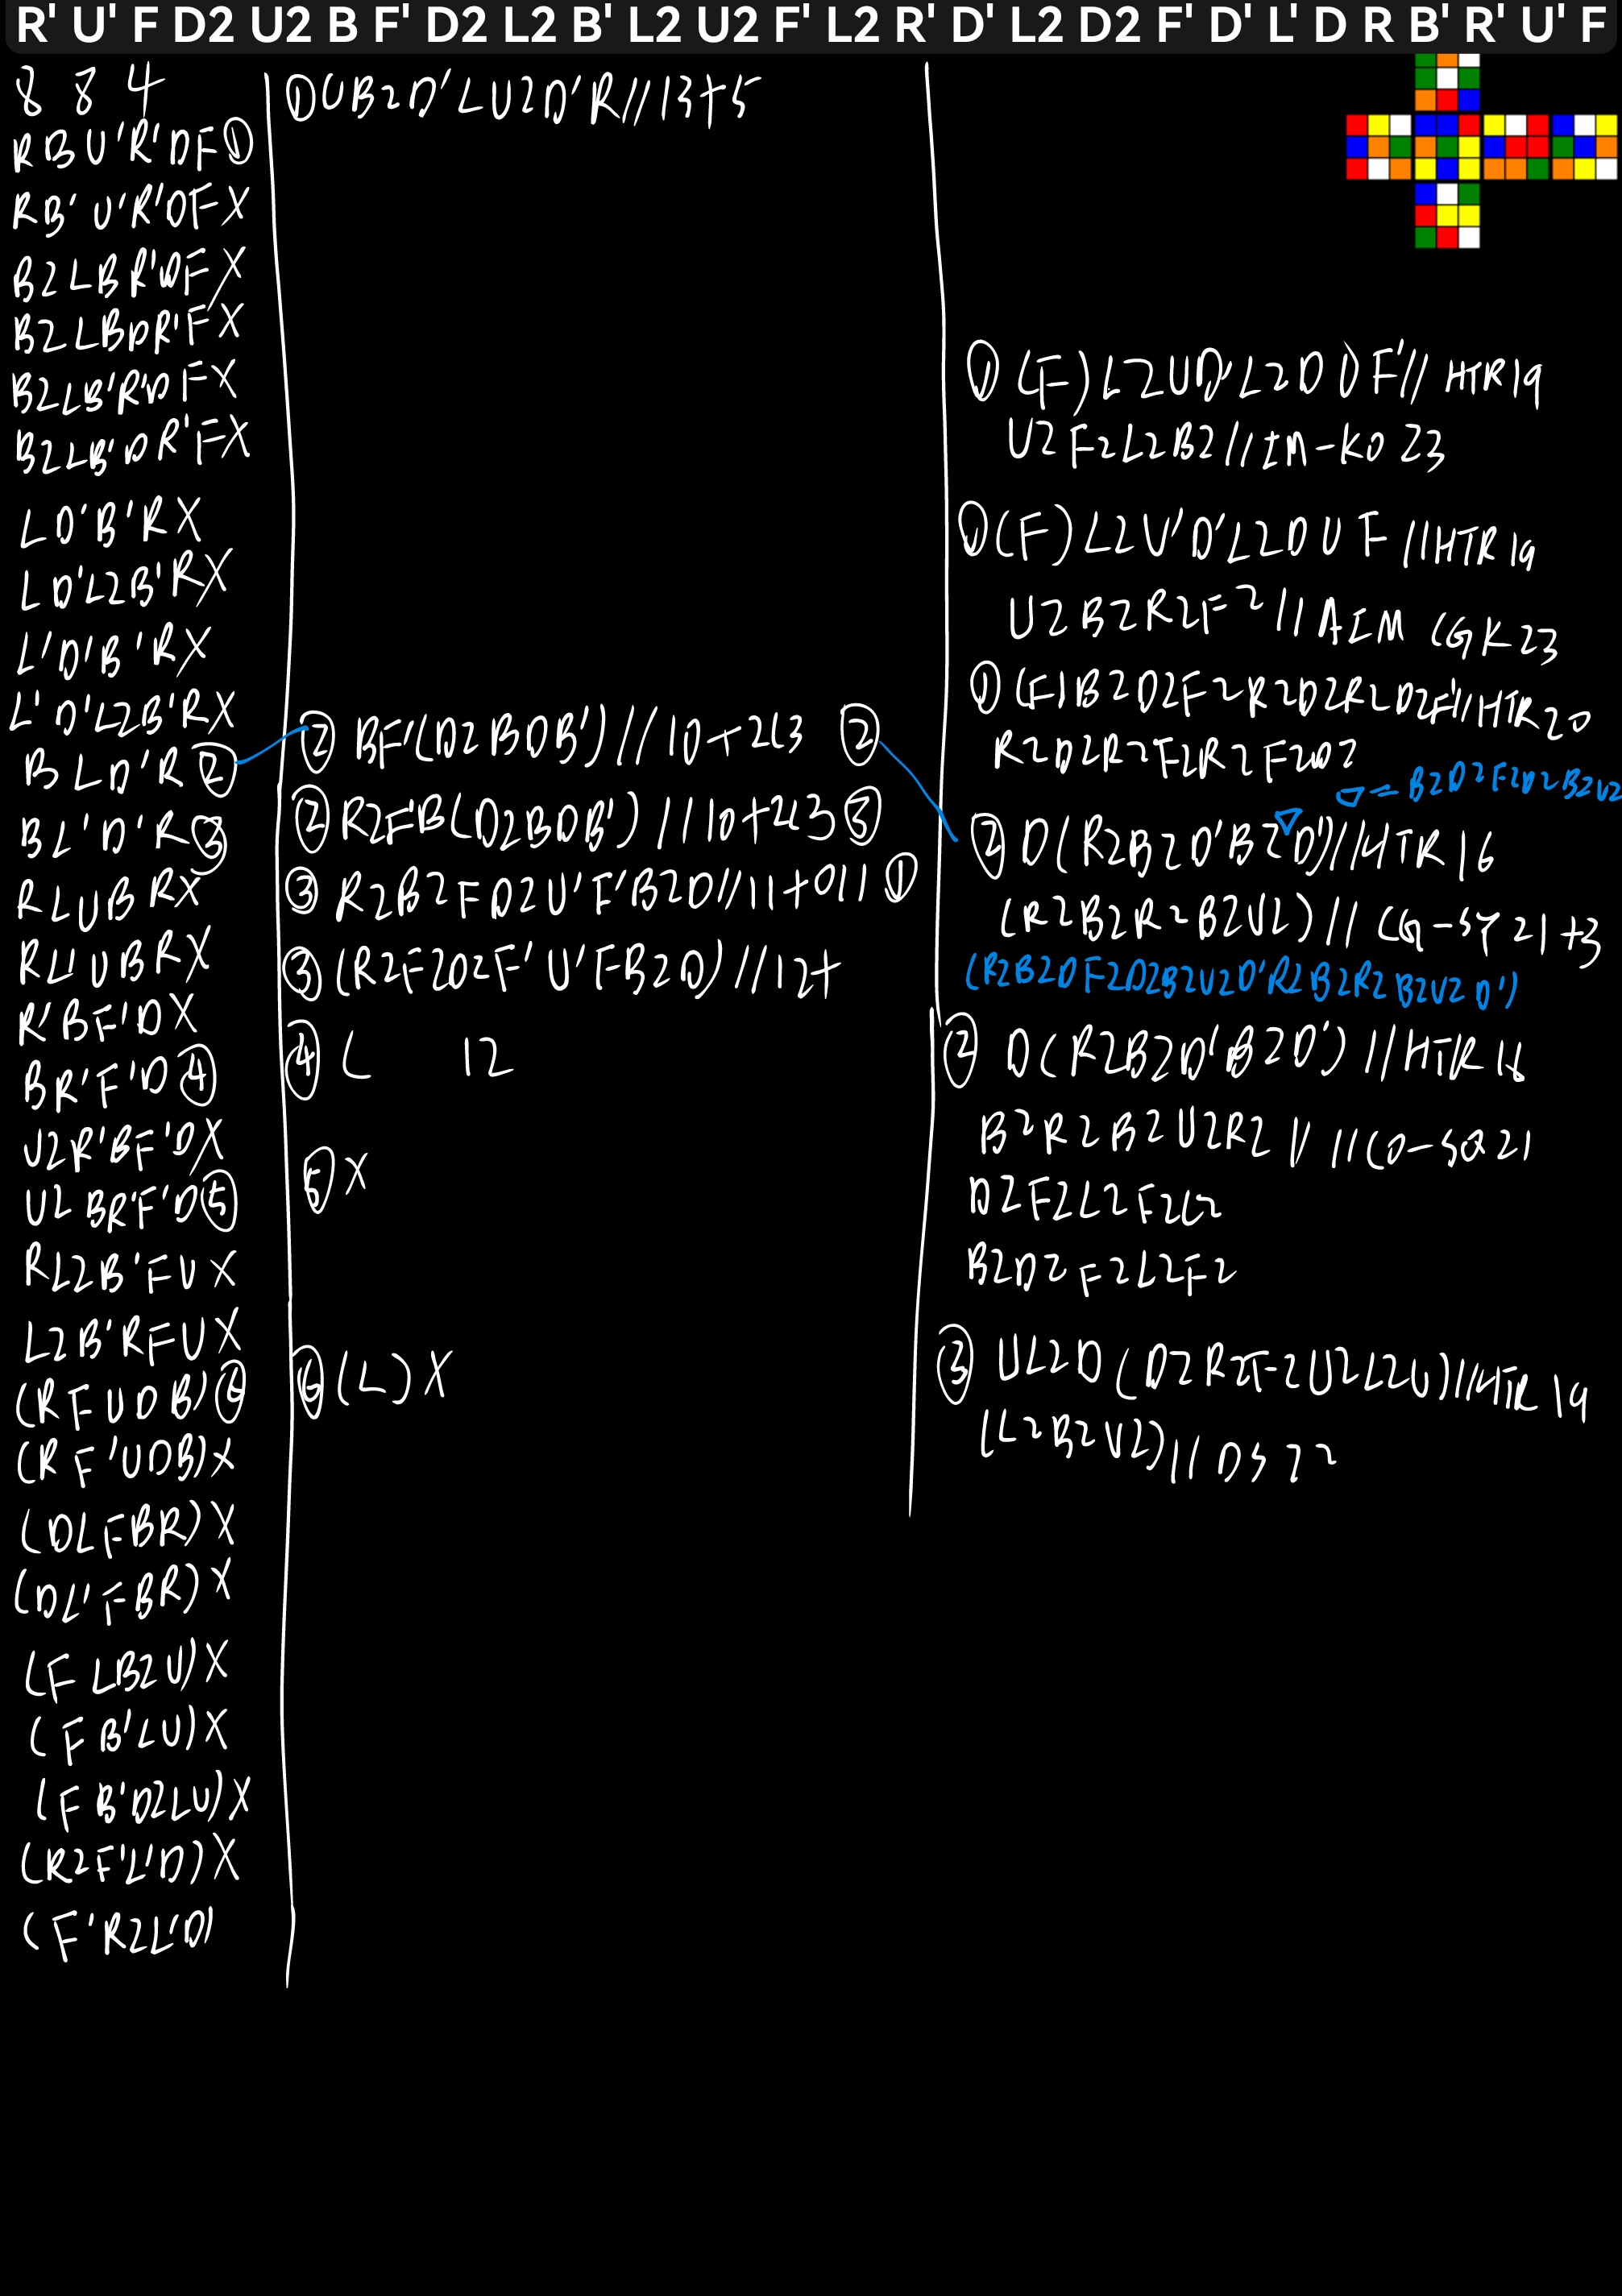 R' U' F D2 U2 B F' D2 L2 B' L2 U2 F' L2 R' D' L2 D2 F' D' L' D R B' R' U' F
8 8 4
RBU'R'DF①
RB'U'R'DFX
B2LBR'DFX
B2LBDR'FX
B2LB'R'DFX
B2LB'DR'FX
LD'B'RX
LD'L2B'RX
L'D'B'RX
L'D'L2B'RX
BLD'R②
BL'D'R③
RLUBRX
RL'UBRX
R'BF'DX
BR'F'D④
U2R'BF'DX
U2BR'F'D⑤
RL2B'FUX
L2B'RFUX
(RFUDB)⑥
(RF'UDB)X
(DLFBR)X
(DL'FBR)X
(FLB2U)X
(FB'LU)X
(FB'D2LU)X
(R2F'L'D)X
(F'R2L'D)
①UB2D'LU2D'R//13+5
②BF'(D2BDB')//10+2C3 ②
②R2F'B(D2BDB')//10+4C3③
③R2B2FD2U'F'B2D//11+011①
③(R2F2D2F'U'FB2D)//12+
④( 12
⑤X
⑥(L)X
①(F)L2UD'L2DDF'//HTR19
U2F2L2B2//IM-KO 23
①(F)L2U'D'L2DUF//HTR19
U2B2R2F2//AIM CGK23
①(F)B2D2F2R2D2R2D2F'//HTR20
R2D2R2F2R2F2D2
▽=B2D2F2D2B2U2
②D(R2B2D'B2▽D')//HTR16
(R2B2R2B2U2)//CG-SY21+3
(R2B2DF2D2B2U2D'R2B2R2B2U2D')
②D(R2B2D'B2D')//HTR16
B2R2B2U2R2////CO-SQ21
D2F2L2F2L2
B2D2F2L2F2
③UL2D(D2R2F2U2L2U)//HTR19
(L2B2U2)//DS22